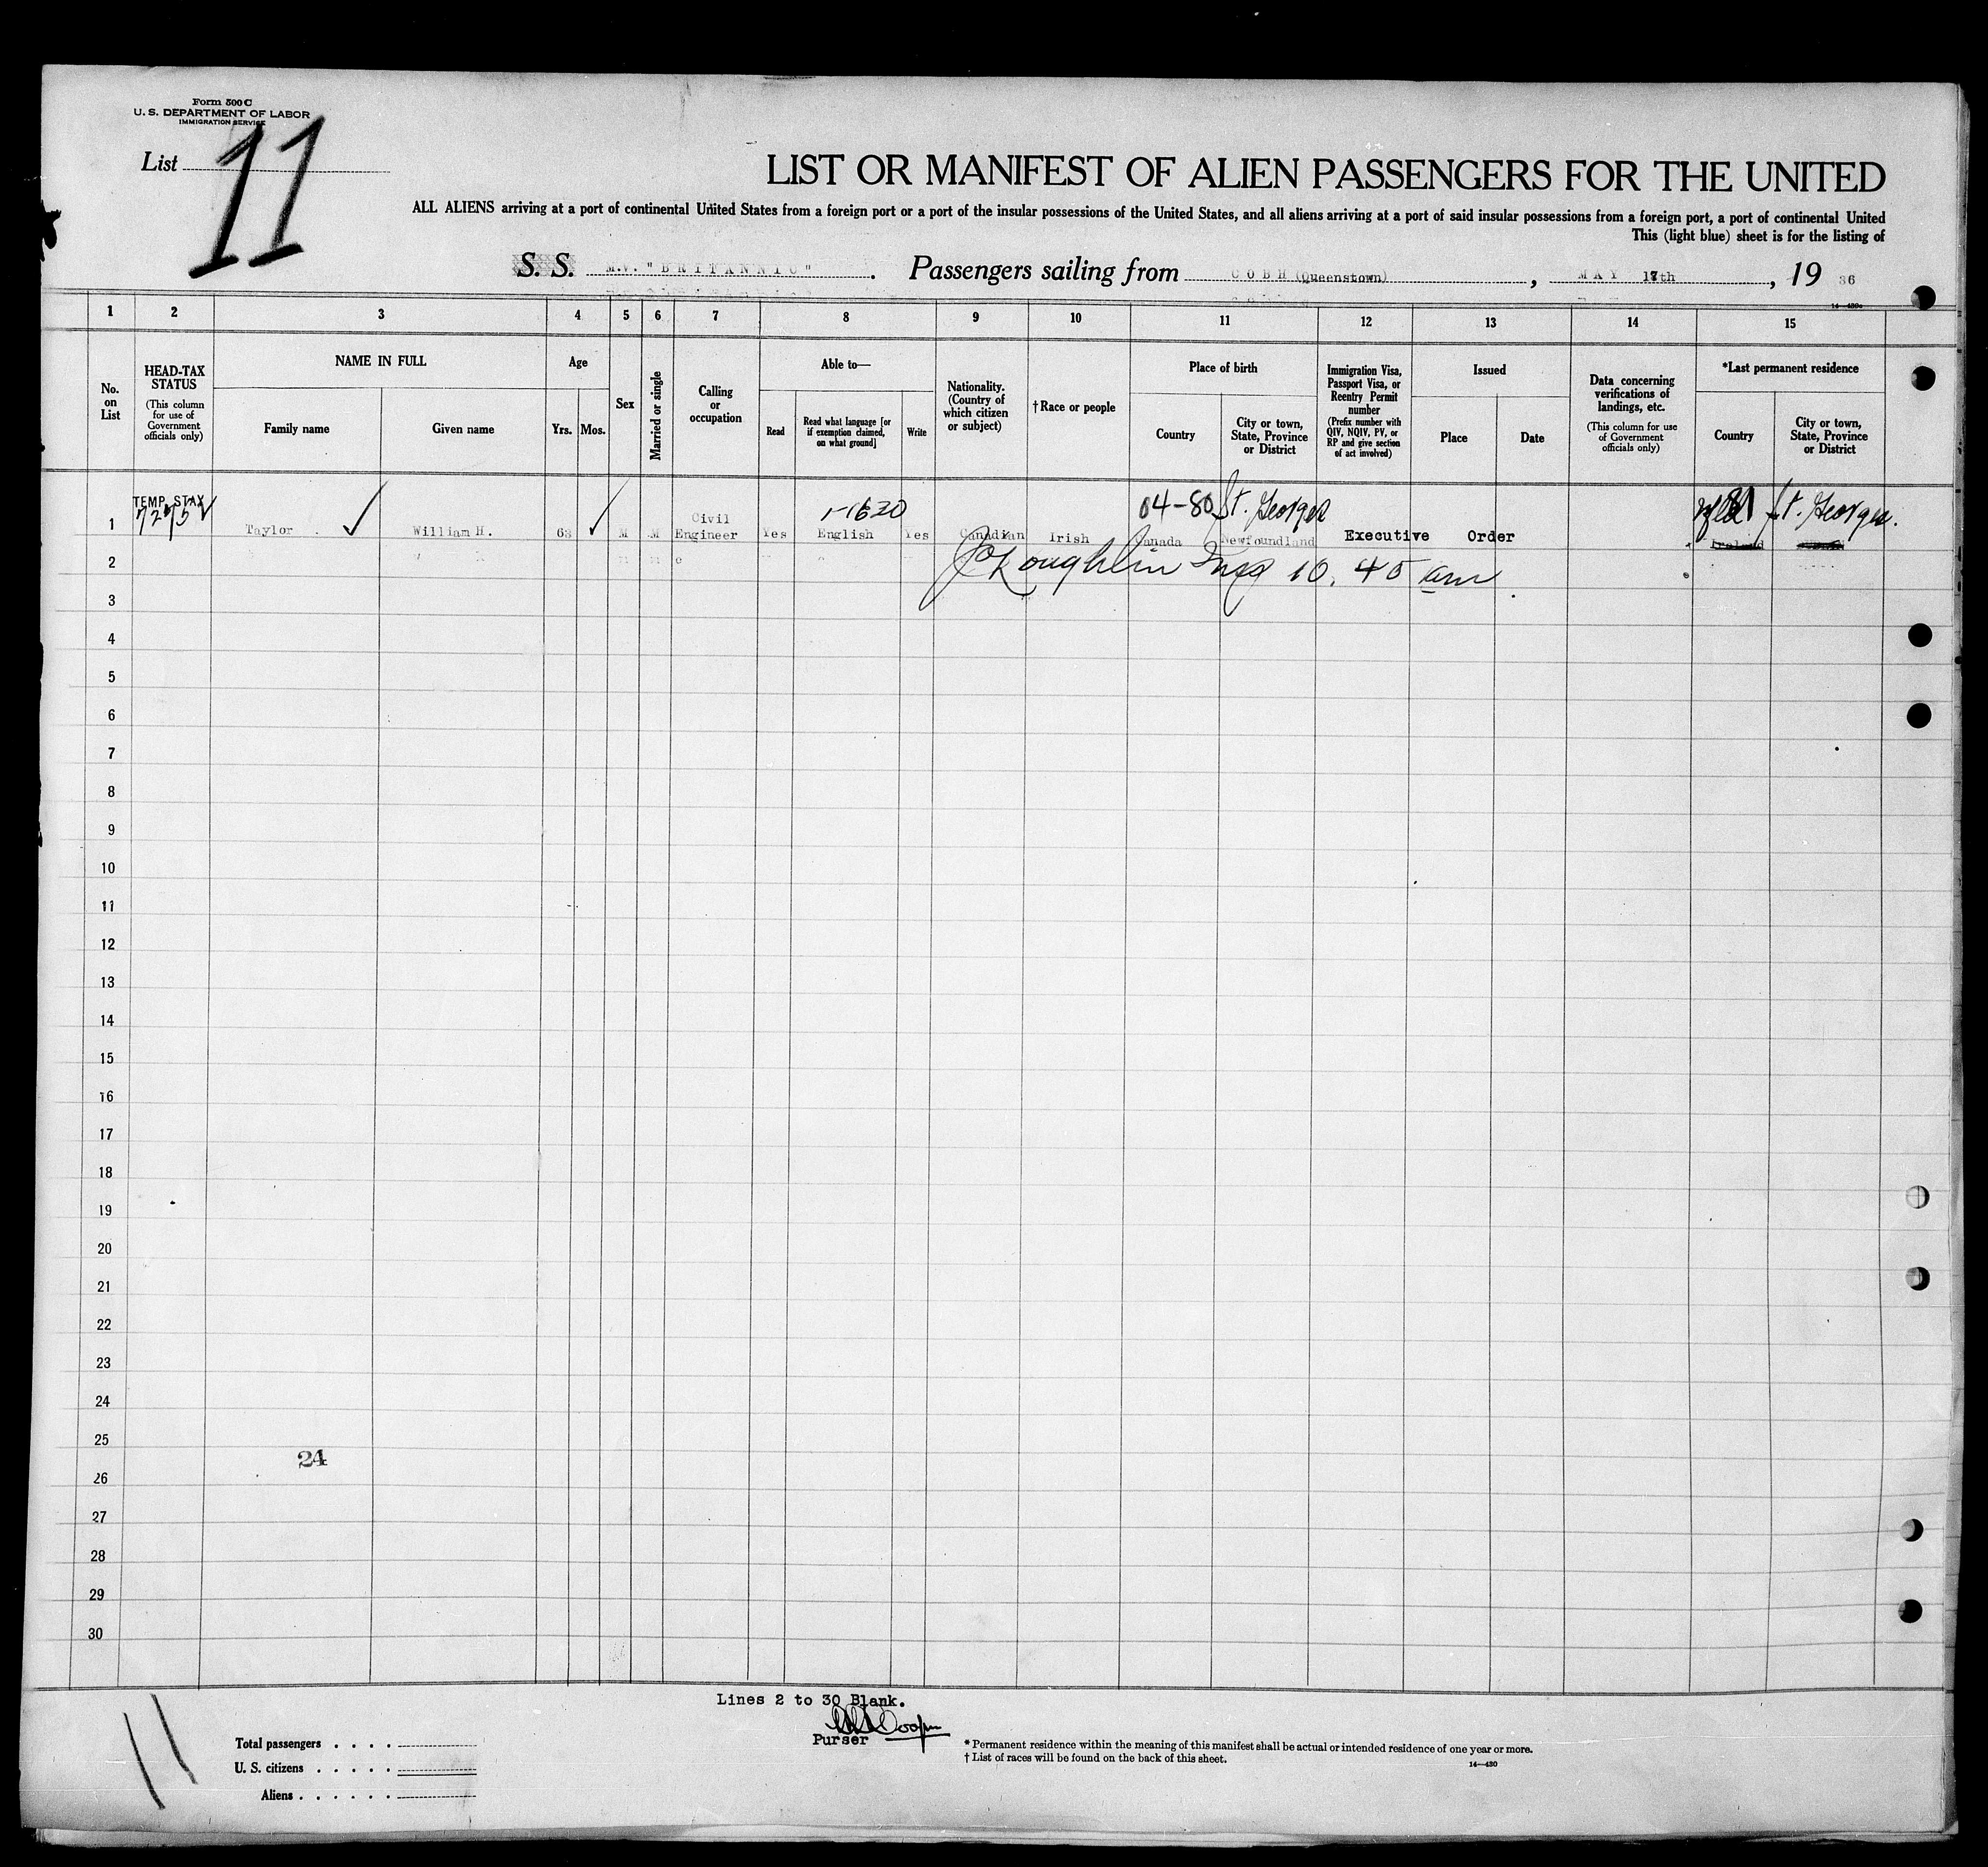 Form 500 C
U. S. DEPARTMENT OF LABOR
IMMIGRATION SERVICE
List 11
LIST OR MANIFEST OF ALIEN PASSENGERS FOR THE UNITED
ALL ALIENS arriving at a port of continental United States from a foreign port or a port of the insular possessions of the United States, and all aliens arriving at a port of said insular possessions from a foreign port, a port of continental United
This (light blue) sheet is for the listing of
S. S. M.V. "BRITANNIC". Passengers sailing from COBH (Queenstown), MAY 17th, 19 36
1 2 3 4 5 6 7 8 9 10 11 12 13 14 15
No. on List
HEAD-TAX STATUS
(This column for use of Government officials only)
NAME IN FULL
Family name
Given name
Age
Yrs. Mos.
Sex
Married or single
Calling or occupation
Able to—
Read
Read what language [or if exemption claimed, on what ground]
Write
Nationality. (Country of which citizen or subject)
†Race or people
Place of birth
Country
City or town, State, Province or District
Immigration Visa, Passport Visa, or Reentry Permit number
(Prefix number with QIV, NQIV, PV, or RP and give section of act involved)
Issued
Place
Date
Data concerning verifications of landings, etc.
(This column for use of Government officials only)
*Last permanent residence
Country
City or town, State, Province or District
TEMP. STAX
04-80 St. Georges
St. Georges.
1 Taylor William H. 63 M M Civil Engineer Yes English Yes Canadian Irish Canada Newfoundland Executive Order Ireland
2
10.40 am
3
4
5
6
7
8
9
10
11
12
13
14
15
16
17
18
19
20
21
22
23
24
25
24
26
27
28
29
30
Lines 2 to 30 Blank.
Purser
11
Total passengers . . . .
U. S. citizens . . . . .
Aliens . . . . . .
* Permanent residence within the meaning of this manifest shall be actual or intended residence of one year or more.
† List of races will be found on the back of this sheet.
14—430